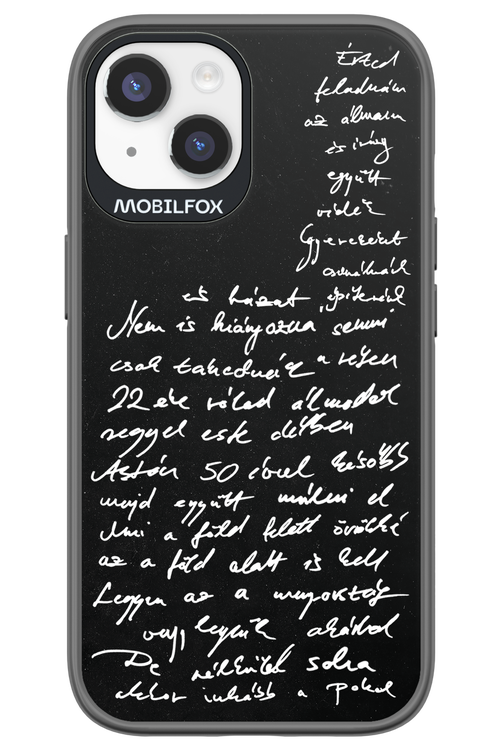 MOBILFOX
Érted
feladnám
az álmom
és így
együtt
Gyereket
csinálnánk
és házat építenénk
Nem is hiányozna semmi
csak takednánk a régen
22 éve rólad álmodok
reggel este délben
Aztán 50 évvel később
majd együtt múlni el
Ami a föld felett örökké
az a föld alatt is kell
Legyen az a mennyország
vagy legyünk akárhol
De nélküled soha
akkor inkább a Pokol